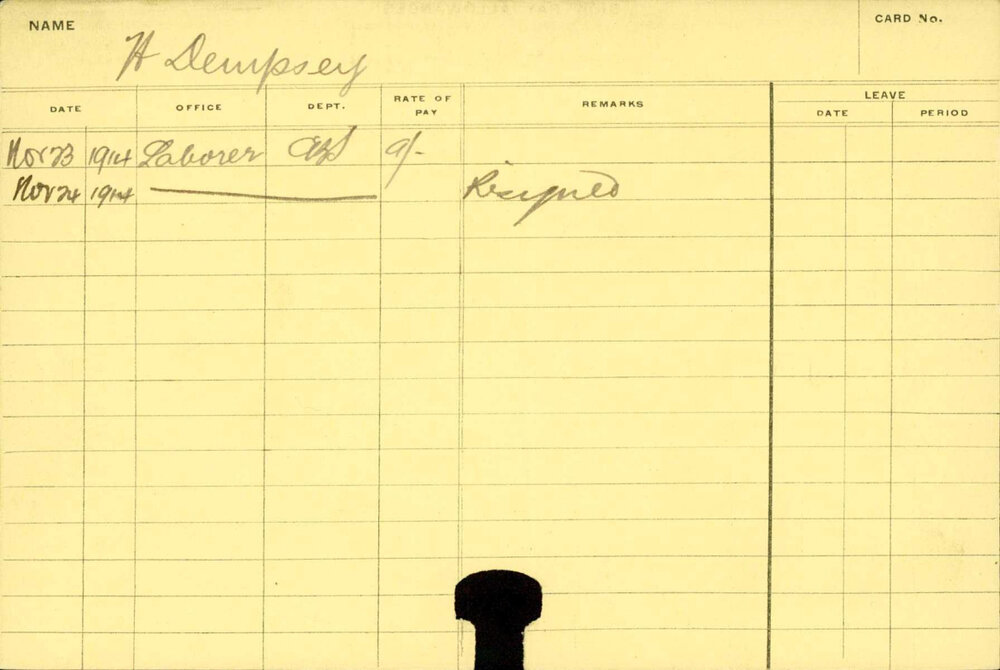 NAME
H Dempsey
CARD No.
DATE OFFICE DEPT. RATE OF PAY REMARKS LEAVE
DATE PERIOD
Nov 23 1914 Laborer 9/-
Nov 24 1914 Resigned